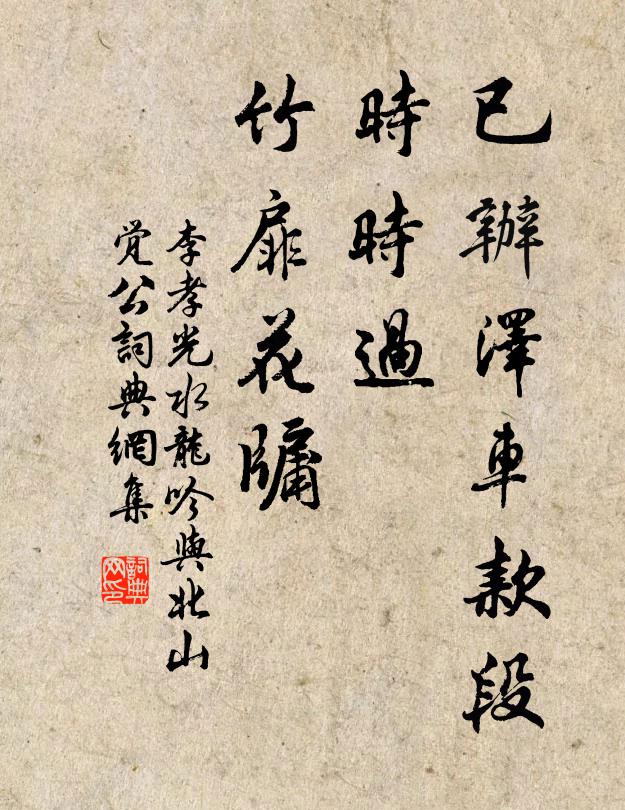 已辦澤車款段
時時過
竹扉花牖
李孝光水龍吟與北山
覺公詞典網集
詞典網印